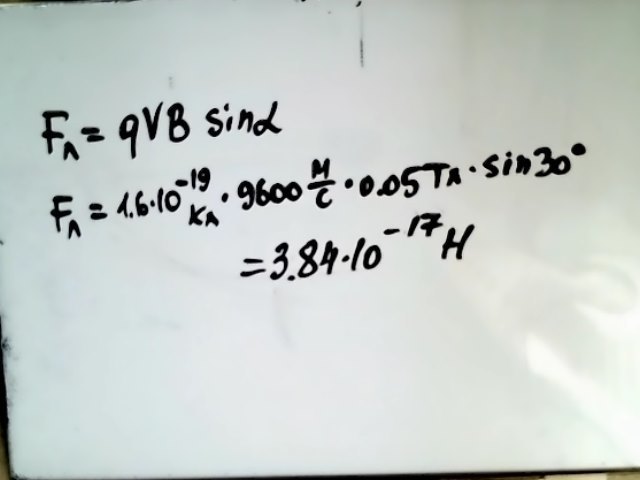 Fл = qVB sinα
Fл = 1.6·10⁻¹⁹ Кл · 9600 м/с · 0.05 Тл · sin30°
= 3.84·10⁻¹⁷ Н